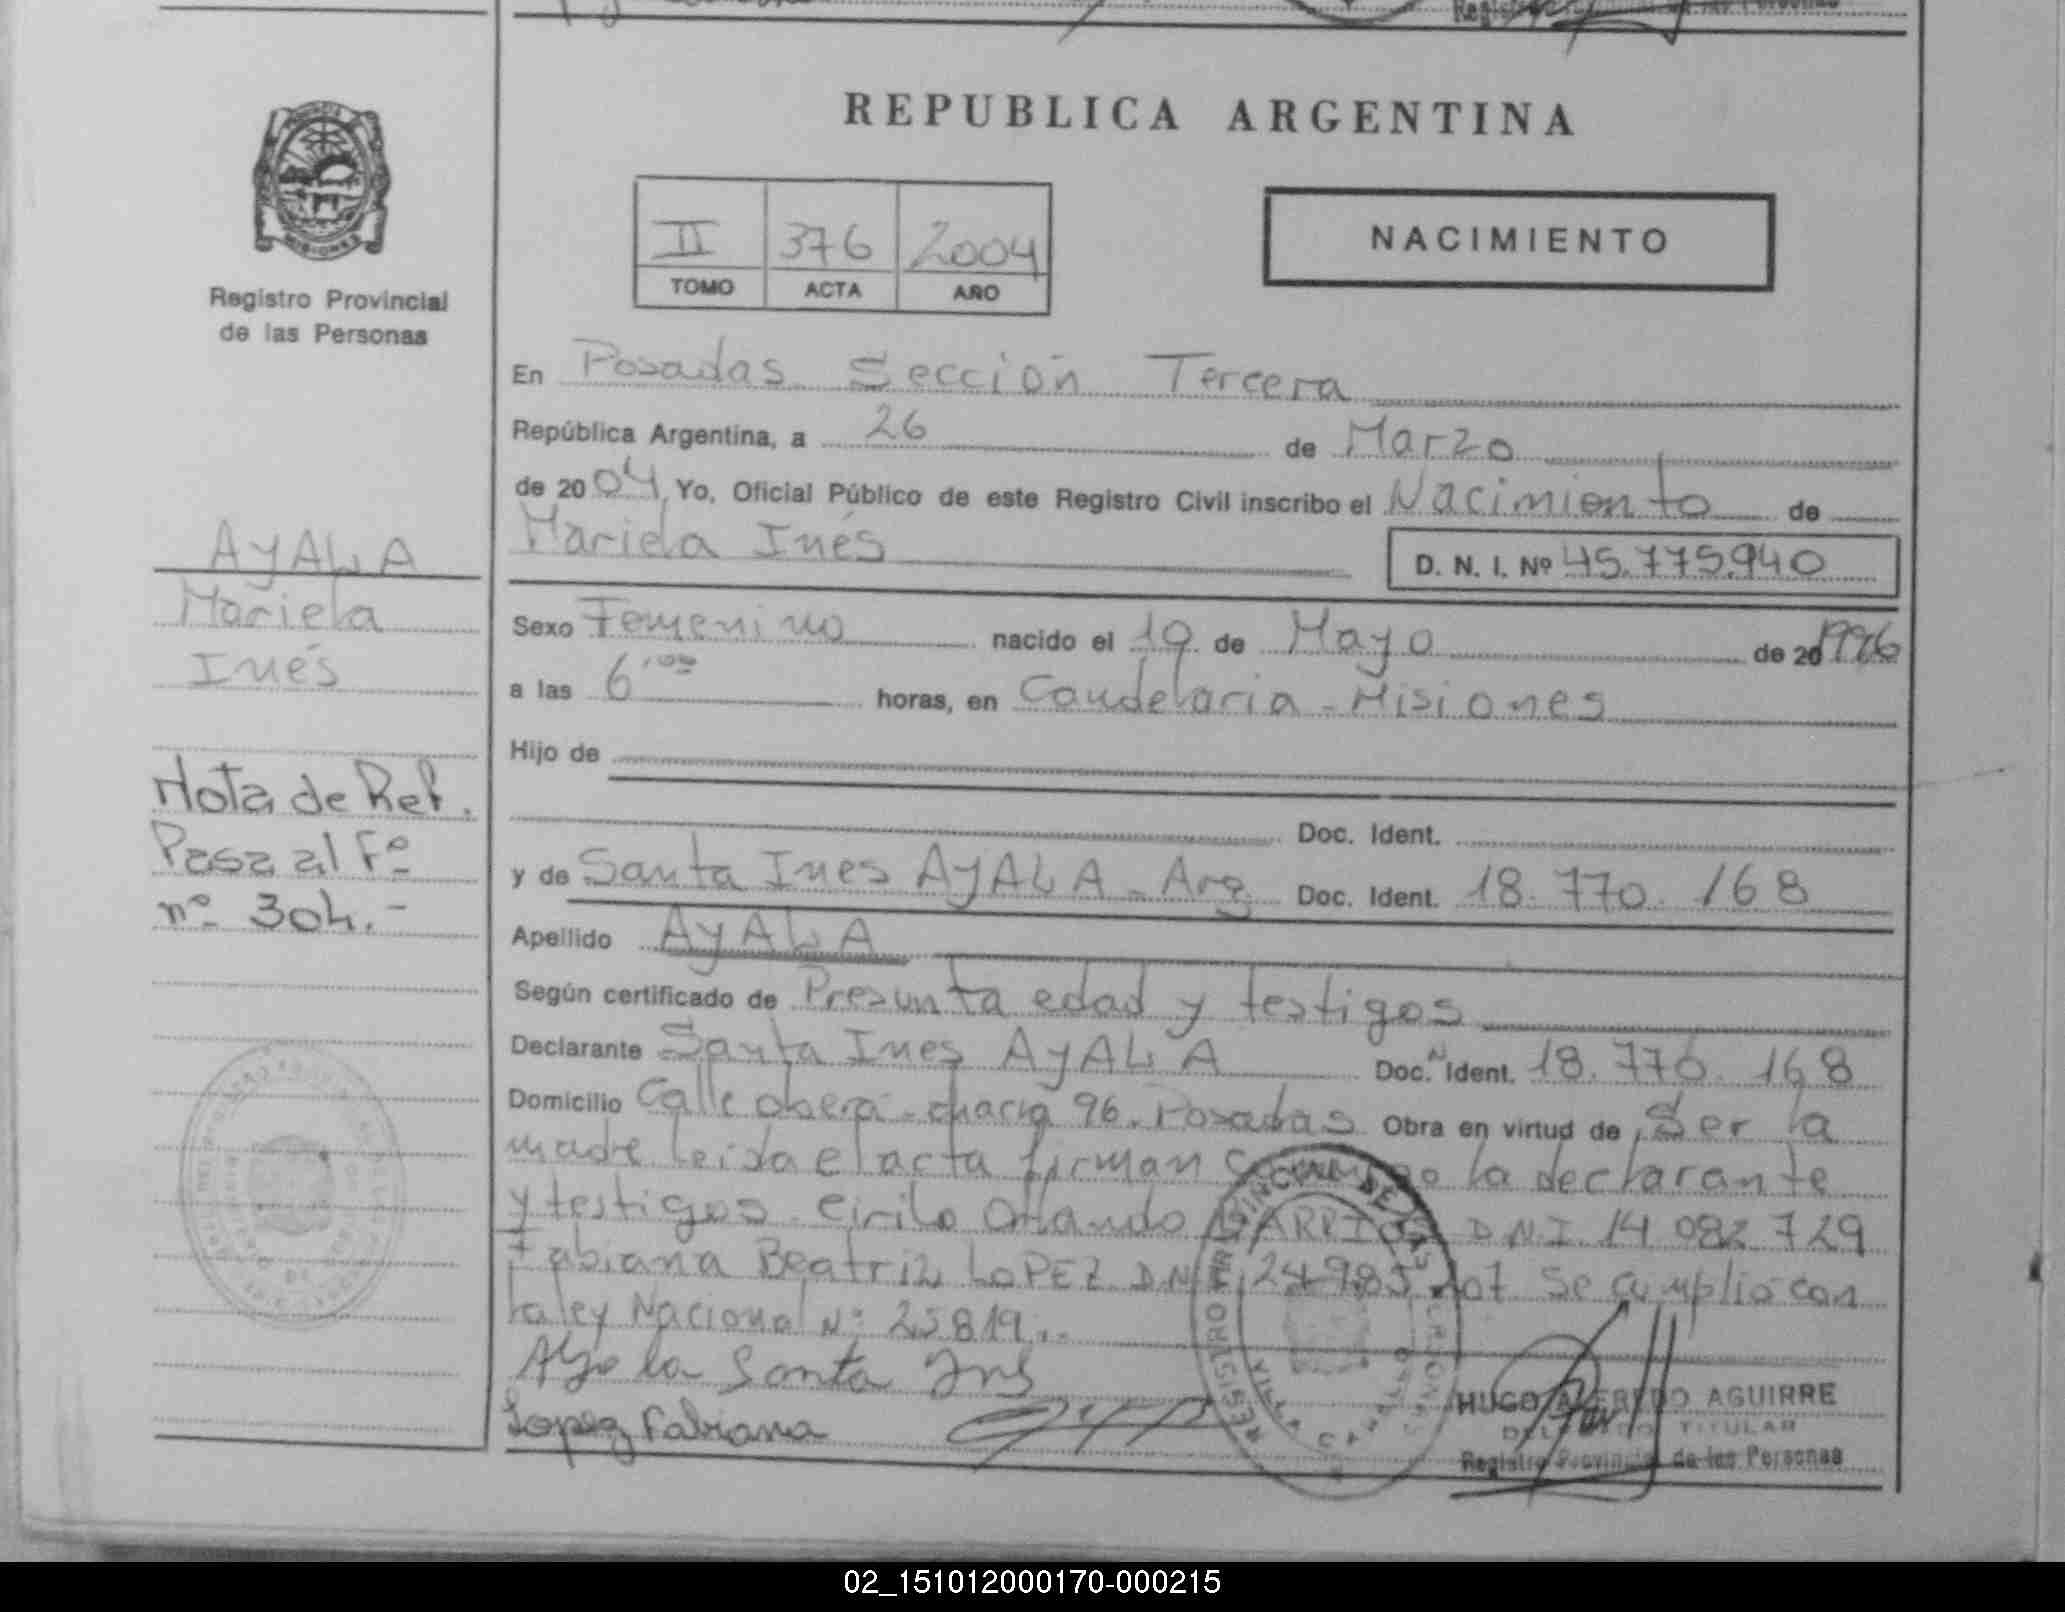 REPUBLICA ARGENTINA
MISIONES
Registro Provincial
de las Personas
II 376 2004
TOMO ACTA AÑO
NACIMIENTO
En Posadas Sección Tercera
República Argentina, a 26 de Marzo
de 2004, Yo, Oficial Público de este Registro Civil inscribo el Nacimiento de
Mariela Inés
D. N. I. Nº 45.775.940
AYALA
Mariela
Inés
Sexo Femenino nacido el 19 de Mayo de 20 1996
a las 6,00 horas, en Candelaria - Misiones
Hijo de
Doc. Ident.
y de Santa Ines AYALA - Arg Doc. Ident. 18.770.168
Nota de Ref.
Pasa al Fº
nº 304.-
Apellido AYALA
Según certificado de Presunta edad y testigos
Declarante Santa Ines AYALA Doc. Ident. 18.770.168
Domicilio Calle obera - chacra 96. Posadas Obra en virtud de Ser la
madre leida el acta firman conmigo la declarante
y testigos. Cirilo Orlando D.N.I. 14 082 729
Fabiana Beatriz LOPEZ D.N.I. Se cumplio con
la ley Nacional Nº 25819.-
Ayala Santa Ines
Lopez Fabiana
HUGO ALFREDO AGUIRRE
DELEGADO TITULAR
Registro Provincial de las Personas
02_151012000170-000215